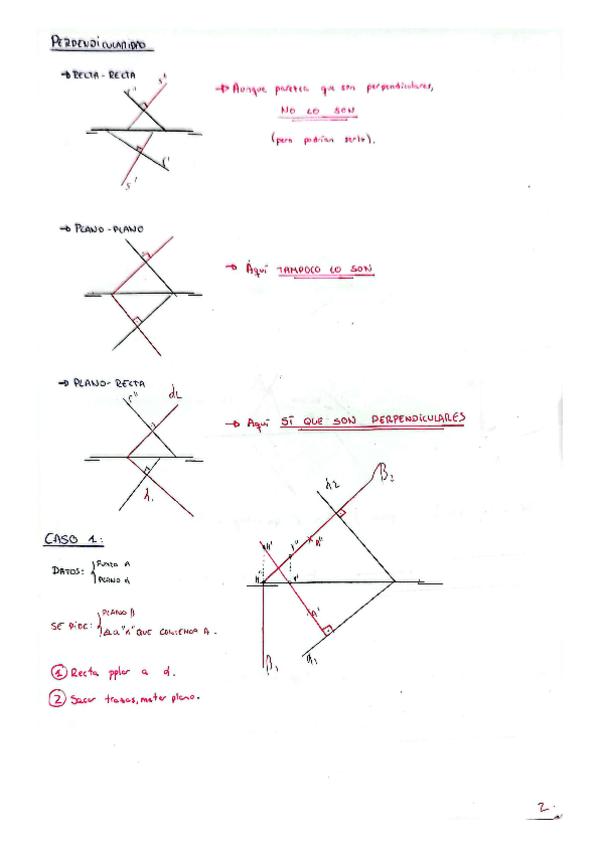 PERPENDICULARIDAD
→ RECTA - RECTA
s"
r"
r'
s'
→ Aunque parezca que son perpendiculares,
NO LO SON
(pero podrían serlo).
→ PLANO - PLANO
→ Aquí TAMPOCO LO SON
→ PLANO - RECTA
r"
→ Aquí SÍ QUE SON PERPENDICULARES
CASO 1:
DATOS: { PUNTO A
PLANO α
SE PIDE: { PLANO β
QUE CONTENGA A.
① Recta pplar a α.
② Sacar trazas, meter plano.
α2
β2
H'
V"
A"
H"
V'
A'
α1
β1
2.